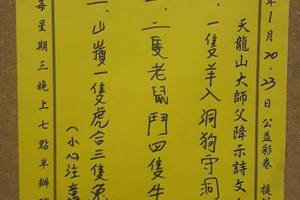 年1月20.23日公益彩卷提
天龍山大師父降示詩文
一、一隻羊入洞狗守洞
一、二隻老鼠鬥四隻牛
一、山嶺一隻虎合三隻兔
(小心注意
每星期三晚上七點半辦